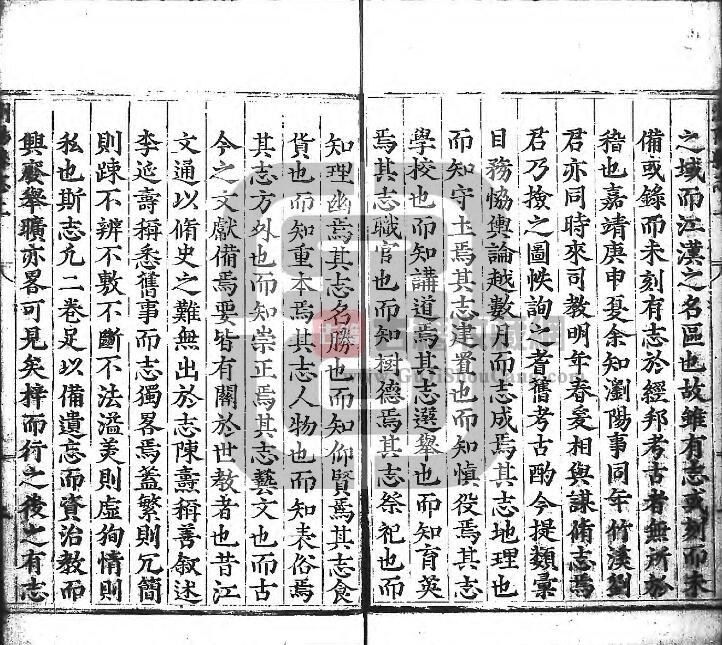 之域而江漢之名區也故雖有志或刻而未
備或錄而未刻有志於經邦考古者無所於
稽也嘉靖庚申夏余知瀏陽事同年竹溪劉
君亦同時來司教明年春爰相與謀脩志焉
君乃撿之圖帙詢之耆舊考古酌今提類彙
目務恊輿論越數月而志成焉其志地理也
而知守土焉其志建置也而知慎役焉其志
學校也而知講道焉其志選舉也而知育英
焉其志職官也而知樹德焉其志祭祀也而
知理幽焉其志名勝也而知仰賢焉其志食
貨也而知重本焉其志人物也而知表俗焉
其志方外也而知崇正焉其志藝文也而古
今之文獻備焉要皆有關於世教者也昔江
文通以脩史之難無出於志陳壽稱善叙述
李延壽稱悉舊事而志獨畧焉蓋繁則冗簡
則踈不辨不敷不斷不法溢美則虛狥情則
私也斯志凢二卷足以備遺忘而資治教而
興廢舉曠亦畧可見矣梓而行之後之有志